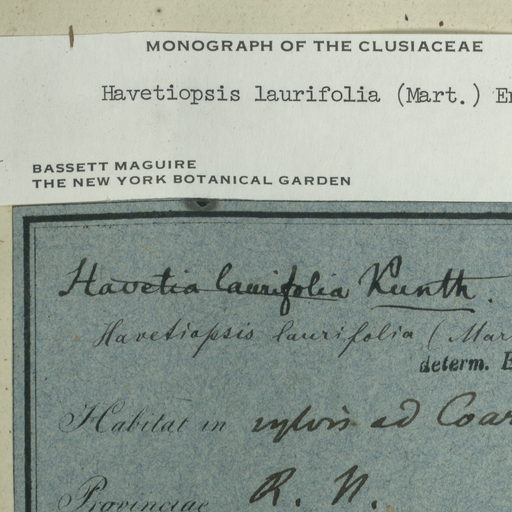 MONOGRAPH OF THE CLUSIACEAE
Havetiopsis laurifolia (Mart.) En
BASSETT MAGUIRE
THE NEW YORK BOTANICAL GARDEN
Havetia laurifolia Kunth.
Havetiopsis laurifolia (Mar
determ. E
Habitat in sylvis ad Coar
Provinciae R. N.